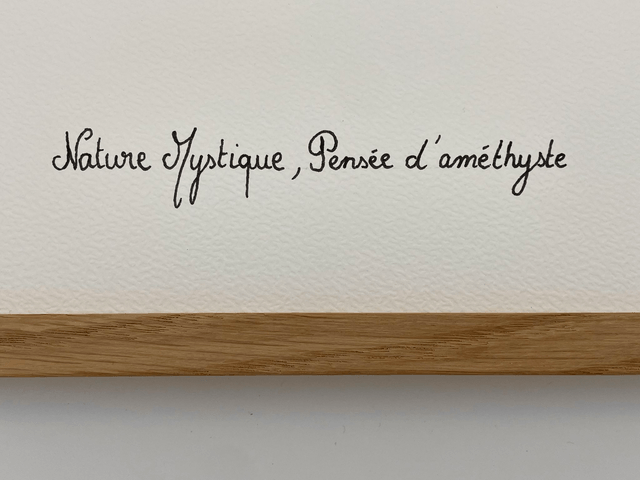 Nature Mystique, Pensée d'améthyste